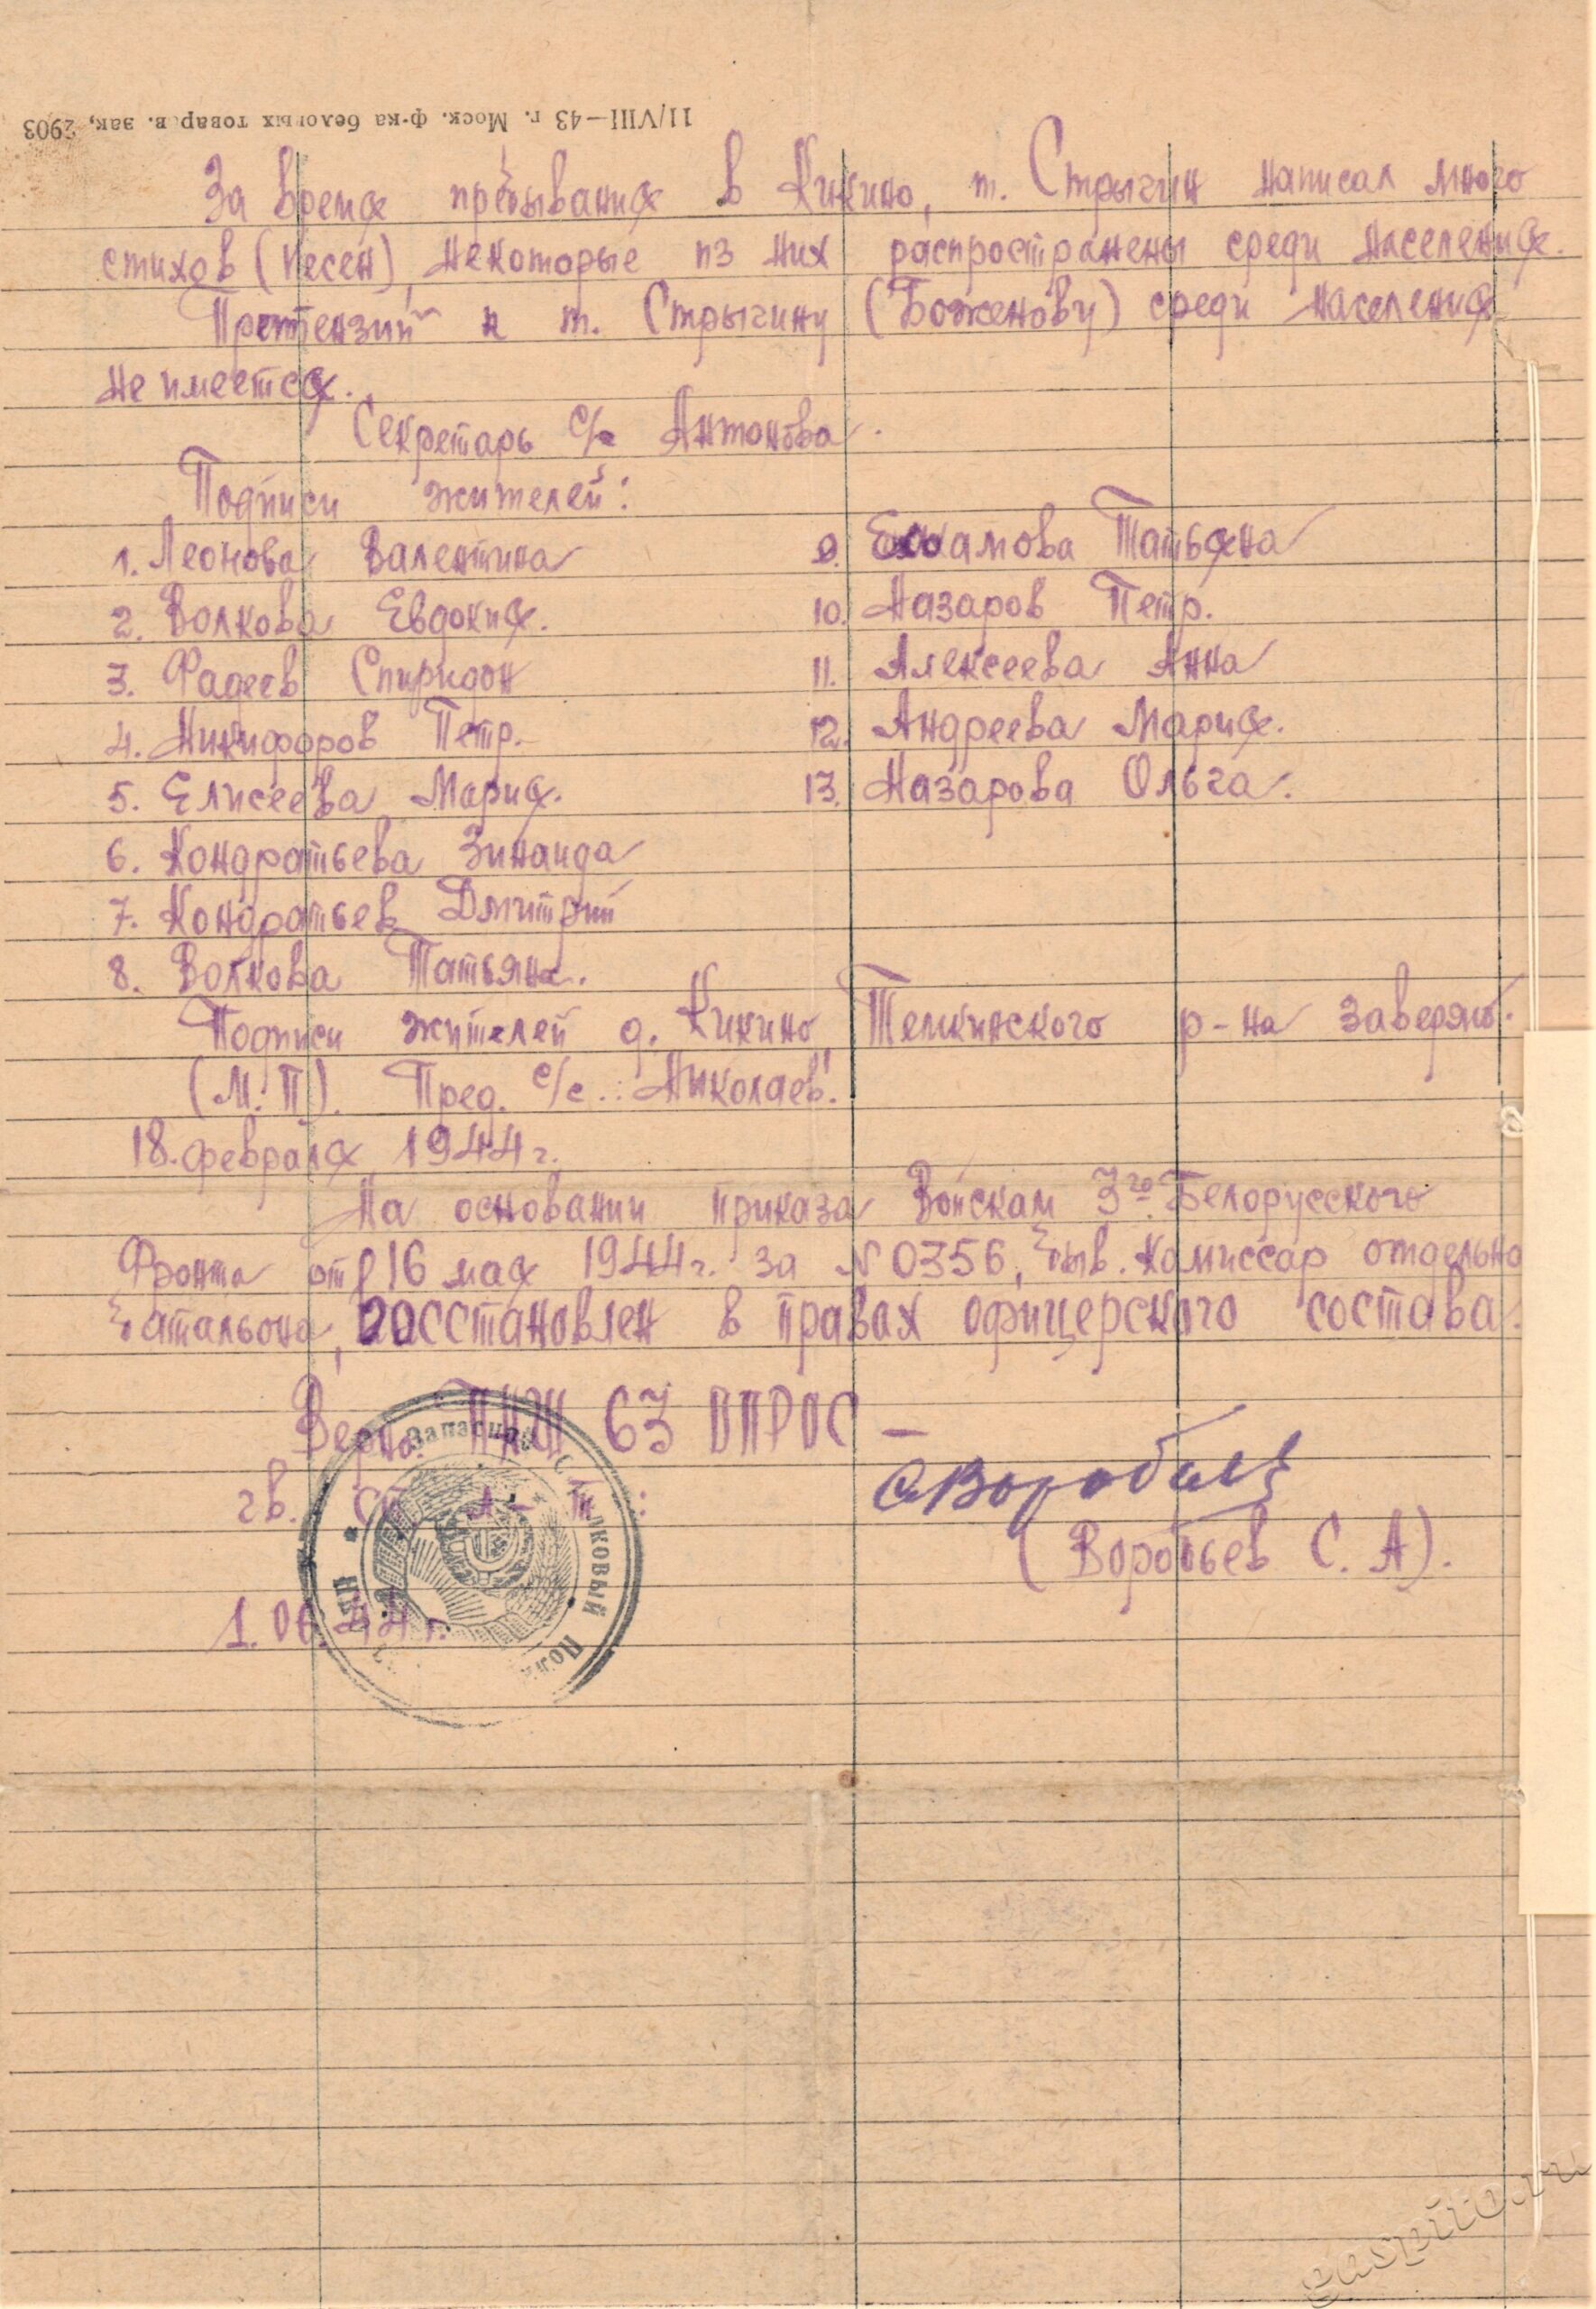 11/VIII—43 г. Моск. ф-ка беловых товаров. зак. 2903
За время пребывания в Кикино, т. Стрыгин написал много
стихов (песен), некоторые из них распространены среди населения.
Претензий к т. Стрыгину (Боженову) среди населения
не имеется.
Секретарь с/с Антонова.
Подписи жителей:
1. Леонова Валентина
2. Волкова Евдокия.
3. Фадеев Спиридон
4. Никифоров Петр.
5. Елисеева Мария.
6. Кондратьева Зинаида
7. Кондратьев Дмитрий
8. Волкова Татьяна.
9. Татьяна
10. Назаров Петр.
11. Алексеева Анна
12. Андреева Мария.
13. Назарова Ольга.
Подписи жителей д. Кикино, Темкинского р-на заверяю.
(М.П.). Пред. с/с.: Николаев.
18. февраля 1944 г.
На основании приказа Войскам 3го Белорусского
Фронта от 16 мая 1944 г. за N 0356, быв. Комиссар отдельно
батальона, восстановлен в правах офицерского состава.
Верно: ПНШ 63 ОПРОС —
гв. ст. л-т:
С Воробьев
(Воробьев С. А).
1.06.44 г.
Запасной Стрелковый Полк
НКО
gaspito.ru